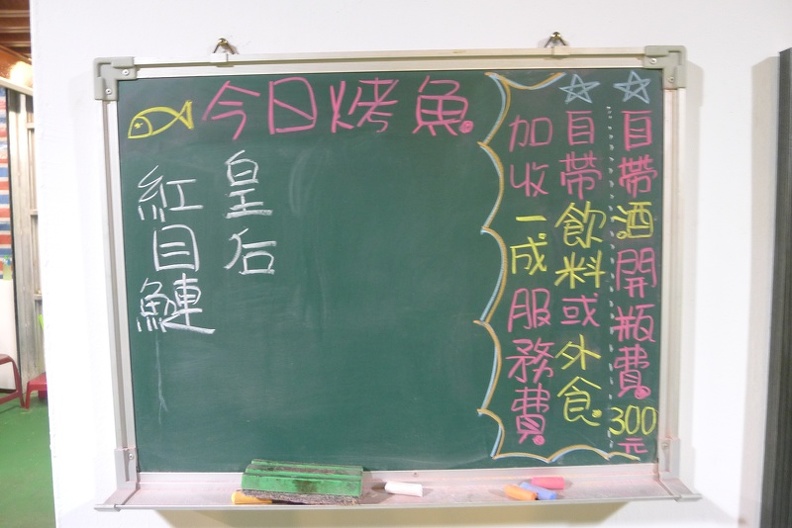 今日烤魚
皇后
紅目鰱
自帶酒開瓶費300元
自帶飲料或外食
加收一成服務費